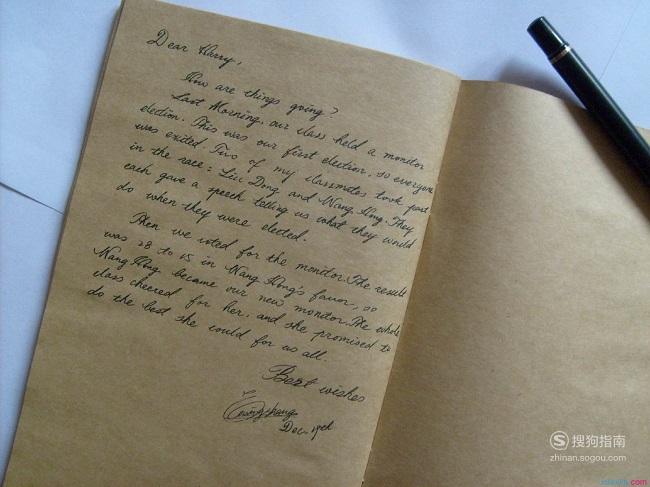 Dear Harry,
How are things going?
Last Morning, our class held a monitor
election. This was our first election, so everyone
was exited. Two of my classmates took part
in the race: Liu Dong and Wang Hong. They
each gave a speech telling us what they would
do when they were elected.
Then we voted for the monitor. The result
was 28 to 15 in Wang Hong's favor, so
Wang Hong became our new monitor. The whole
class cheered for her, and she promised to
do the best she could for us all.
Best wishes
Dec.
搜狗指南
zhinan.sogou.com